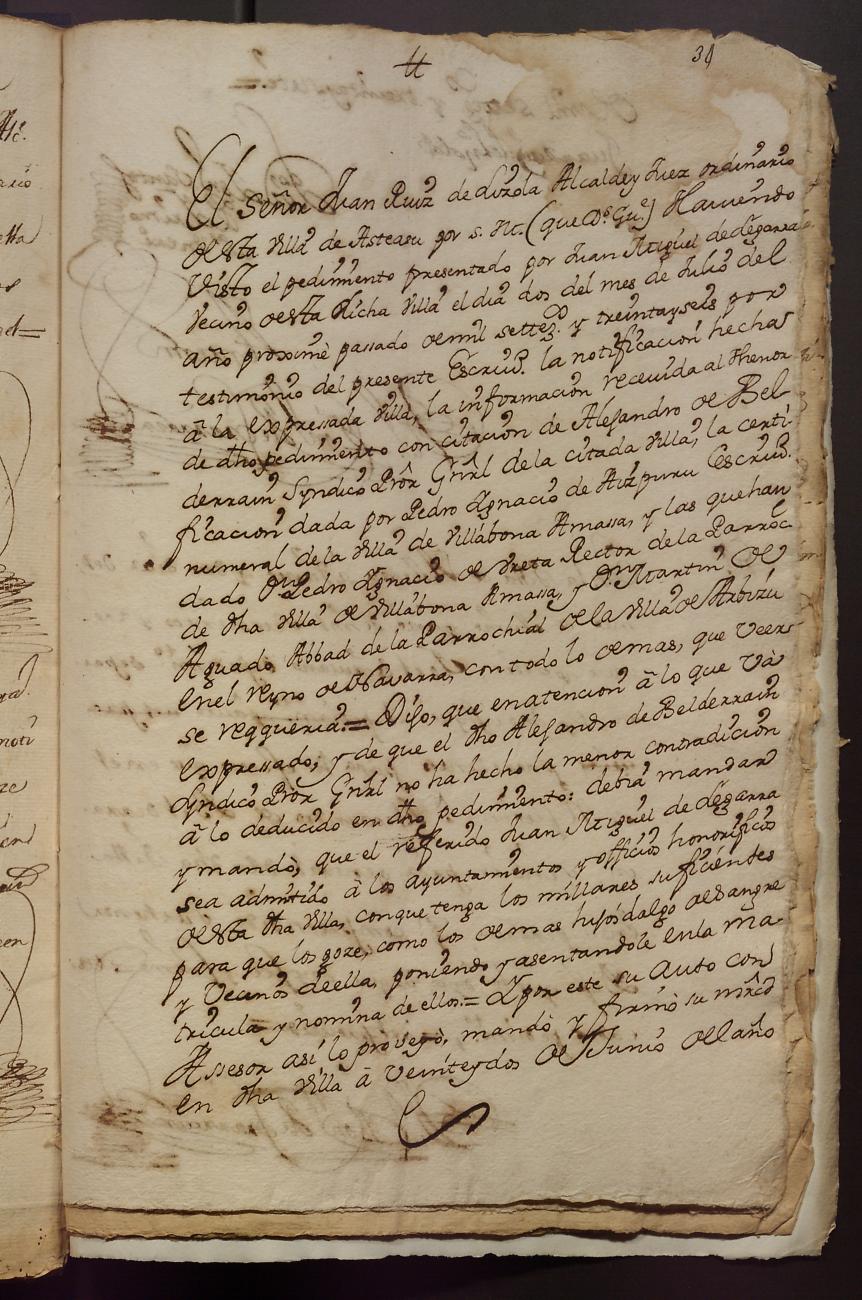 34
El Señor Juan Ruiz de Luzola Alcalde y Juez ordinario
de esta Villa de Asteasu por s. M. (que Ds. Gue.) Haviendo
Visto el pedimiento presentado por Juan Miguel de Legarra
Vecino de esta dicha Villa el dia dos del mes de Julio del
año proximè passado de mil settezos. y treinta y seis por
testimonio del presente Escriuo. la notificacion hecha
à la expressada Villa, la informacion recevida al thenor
de dho pedimiento con citacion de Alejandro de Bel
derrain Syndico Prôr Gnrl de la citada Villa, la certi
ficacion dada por Pedro Ignacio de Aizpuru Escriuo.
numeral de la Villa de Villabona Amassa, y las que han
dado Dn. Pedro Ignacio de Ureta Rector de la Parroc.
de dha Villa de Villabona Amassa, y Dn. Martin de
Aguado Abbad de la Parrochial de la Villa de Arbizu
en el reyno de Navarra, con todo lo demas, que veer
se reqqueria.= Dijo, que en atencion à lo que và
expressado, y de que el dho Alejandro de Belderrain
Syndico Prôr Gnrl no ha hecho la menor contradicion
à lo deducido en dho pedimiento: debia mandar
y mandò, que el referido Juan Miguel de Legarra
sea admitido à los ayuntamientos y officios honorificos
de esta dha Villa, con que tenga los millares suficientes
para que los goze, como los demas hijosdalgo de sangre
y Vecinos de ella, poniendo y asentandole en la ma-
tricula y nomina de ellos.= Y por este su Auto con
Assesor así lo proveyò, mandò y firmò su mrcd
en dha Villa à veinte y dos de Junio del año